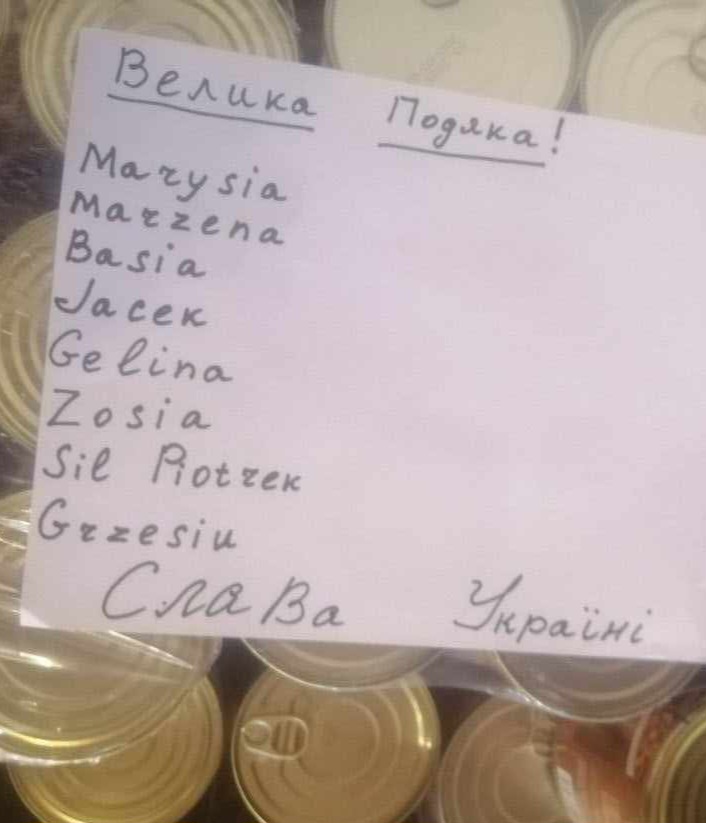 Велика Подяка!
Marysia
Marzena
Basia
Jacek
Gelina
Zosia
Sil Piotrek
Grzesiu
Слава Україні